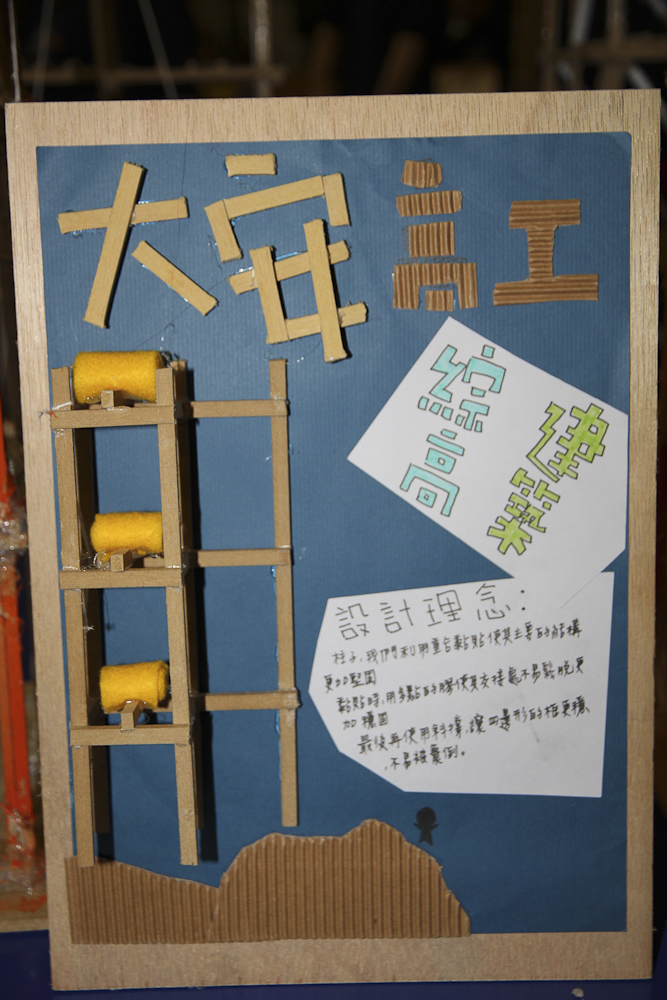 大安高工
綜高
建築
設計理念:
柱子,我們利用重合黏貼使其主要的結構
更加堅固
黏貼時,用多點的膠使其交接處不易鬆脫更
加穩固
最後再使用斜撐,讓四邊形的框更穩
,不易被震倒。